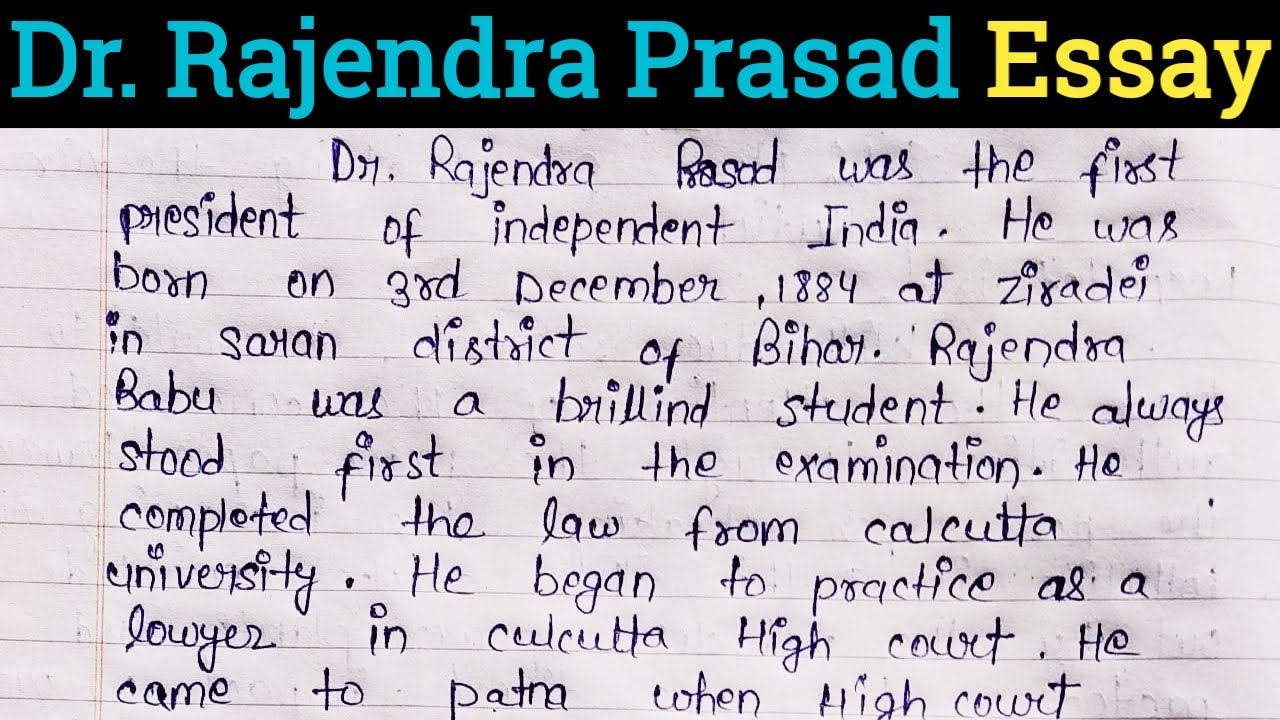 Dr. Rajendra Prasad Essay
Dr. Rajendra Prasad was the first
president of independent India. He was
born on 3rd December, 1884 at Ziradei
in saran district of Bihar. Rajendra
Babu was a brillind student. He always
stood first in the examination. He
completed the law from calcutta
university. He began to practice as a
lowyer in culcutta High court. He
came to patna when High court